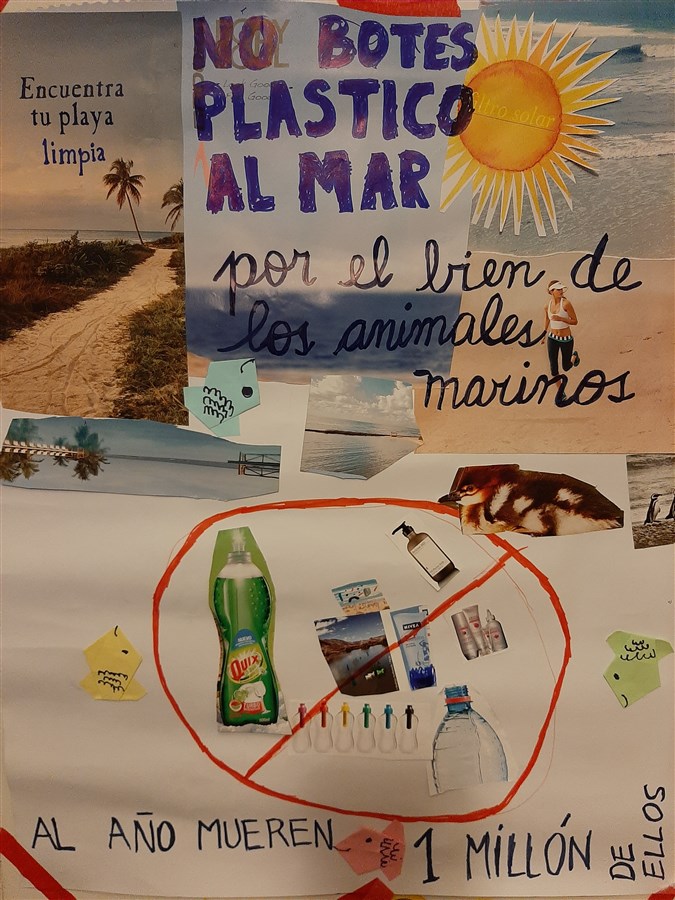 Encuentra
tu playa
limpia
NO BOTES
PLASTICO
AL MAR
filtro solar
por el bien de
los animales
marinos
NIVEA
Quix
AL AÑO MUEREN 1 MILLÓN DE ELLOS